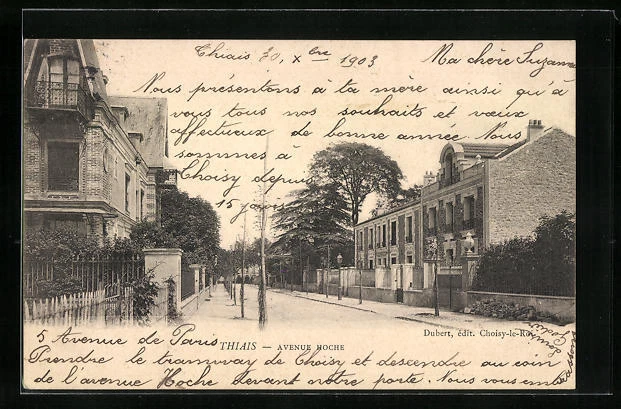 Thiais 30, x bre 1903
Ma chère Suzanne
Nous présentons à ta mère ainsi qu'à
vous tous nos souhaits et voeux
affectueux de bonne année. Nous
sommes à
Choisy depuis
15 jours
THIAIS — AVENUE HOCHE
Dubert, édit. Choisy-le-Roi
5 Avenue de Paris
Prendre le tramway de Choisy et descendre au coin
de l'avenue Hoche devant notre porte. Nous vous emb